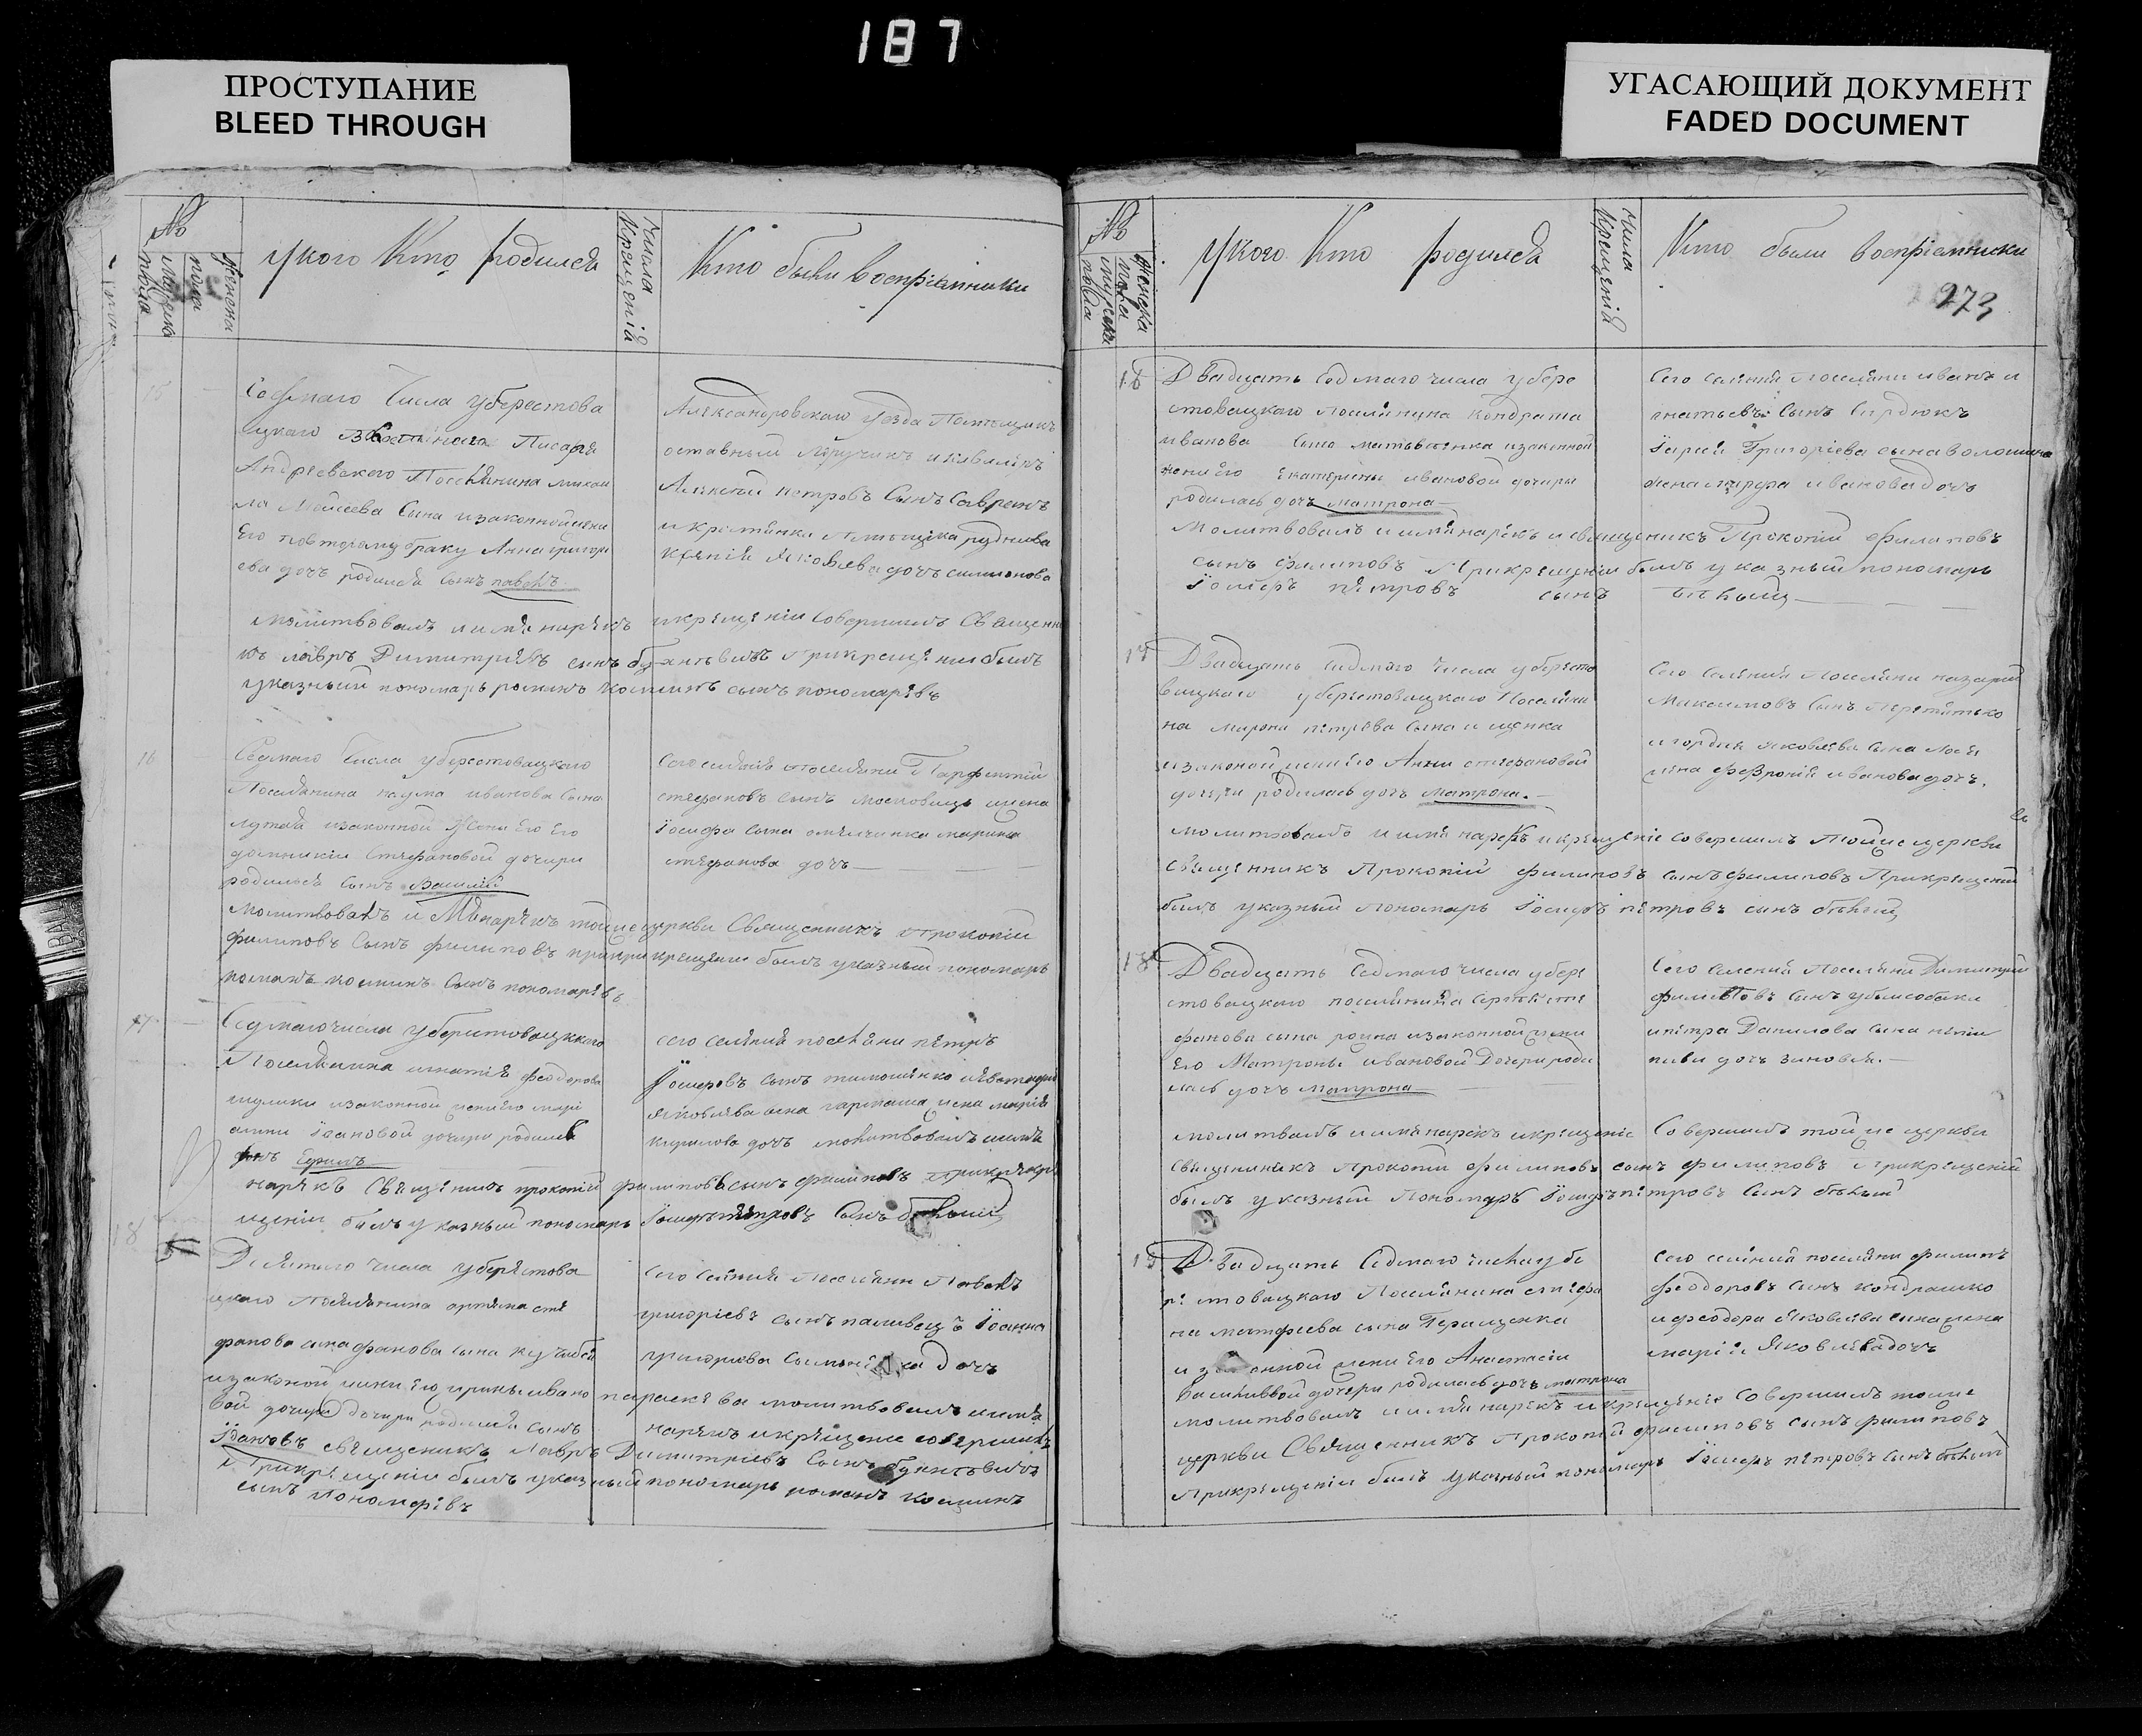 187
ПРОСТУПАНИЕ
BLEED THROUGH
УГАСАЮЩИЙ ДОКУМЕНТ
FADED DOCUMENT
№
Женска пола
Мужска пола
У кого Кто родился
Числа Крещенія
Кто были воспріемники
15
Седмаго Числа уберестова
цкаго Писаря
Андреевскаго Поселянина михаи
ла Мойсеева Сына изаконной жени
Его повторому браку Анна григори
ева дочь родился Сынъ павелъ
Александровскаго уезда Помещикъ
Алексей петровъ Сынъ
яковлева дочь симионова
молитвовалъ и имя нарекъ и крещеніи Совершилъ Священни
къ лавръ Димитріевъ сынъ при крещении былъ
указный пономарь романъ козминъ сынъ пономаревъ
16
Седмаго Числа уберестовацкаго
Поселянина наума иванова Сына
изаконной Жены Его Его
домникіи Стефановой дочири
родился Сынъ Василій
Сего селенія поселянинъ Парфентій
стефановъ Сынъ московецъ
Іосифа Сына марина
стефанова дочь
молитвовалъ и Имя нарекъ тойже церкви Священникъ Прокопій
филиповъ Сынъ филиповъ при крещении былъ указный пономарь
романъ козминъ Сынъ пономаревъ
17
Седмаго числа уберестовацкаго
Поселянина игнатія феодорова
изаконной жени его мари
Іоановой дочири родился
сынъ Ефимъ
сего селенія поселянинъ петръ
Іосифовъ сынъ тимошенко
яковлева сына жена марія
кирилова дочь молитвовалъ и имя
нарекъ Священникъ прокопій филиповъ сынъ филиповъ при кре
щеніи былъ указный пономарь Іосифъ петровъ Сынъ белый
18
Десятого числа уберестова
цкаго поселянина артема сте
фанова сына
изаконной жени Его ирины ивано
вой дочири дочири родился сынъ
Іоаннъ
сего селенія поселянинъ Павелъ
григоріевъ сынъ паливецъ Іоанна
григориева Сына дочь
параскева молитвовалъ и имя
нарекъ и крещение совершилъ
священникъ Лавръ Димитріевъ Сынъ
При крещеніи былъ указный пономарь романъ козминъ
сынъ Пономаревъ
№
Женска пола
мужска пола
У кого Кто родился
Числа Крещеній
Кто были воспріемники
273
16
Двадцать Седмаго числа убере
стовацкаго поселянина кондрата
иванова Сына матвеенка изаконной
жени Его Екатерины ивановой дочири
родилась дочь матрона
Сего селенія поселянинъ иванъ и
гнатьевъ Сынъ Сердюкъ
Григоріева сына волошина
жена ивановадочь
Молитвовалъ и имя нарекъ и священикъ Прокопій филиповъ
сынъ филиповъ При крещеніи былъ указный пономарь
Іосифъ петровъ сынъ белый
17
Двадцать Седмаго числа убересто
вацкаго уберестовацкаго Поселяни
на мирона петрова Сына ищенка
изаконой жени его Анни стефановой
дочери родилась дочь матрона.
Сего Селенія поселянинъ назарій
Максимовъ Сынъ Перетятько
игордія яковлева сына
жена феѳронія ивановадочь.
молитвовалъ и имя нарекъ и крещеніе совершилъ Тойже церкви
Священникъ Прокопій филиповъ сынъ филиповъ При крещеніи
былъ указный пономарь Іосифъ петровъ сынъ белый
18
Двадцать Седмаго числа убере
стовацкаго поселянина Сергея сте
фанова сына изаконной жени
Его Матроны ивановой Дочери роди
лась дочь матрона
Сего Селенія Поселянинъ Димитрій
филиповъ Сынъ убийсобака
ипетра Данилова Сына
дочь зиновія.
молитвалъ и имя нарекъ и крещеніе Совершилъ той же церкви
священникъ Прокопій филиповъ сынъ филиповъ При крещеніи
былъ указный Пономарь Іосифъ петровъ Сынъ белый
19
Двадцать Седмаго числа убе
рестовацкаго Поселянина стефа
на матфеева сына Геращенка
изаконной жени Его Анастасіи
василиевой дочери родилась дочь матрона
сего селенія поселянинъ филипъ
феодоровъ сынъ кондрашко
ифеодора яковлева сына жена
марія яковлевадочь
молитвовалъ и имя нарекъ и крещеніе Совершилъ тоже
церкви Священникъ Прокопій филиповъ сынъ филиповъ
При крещеніи былъ указный пономарь Іосифъ петровъ сынъ белый